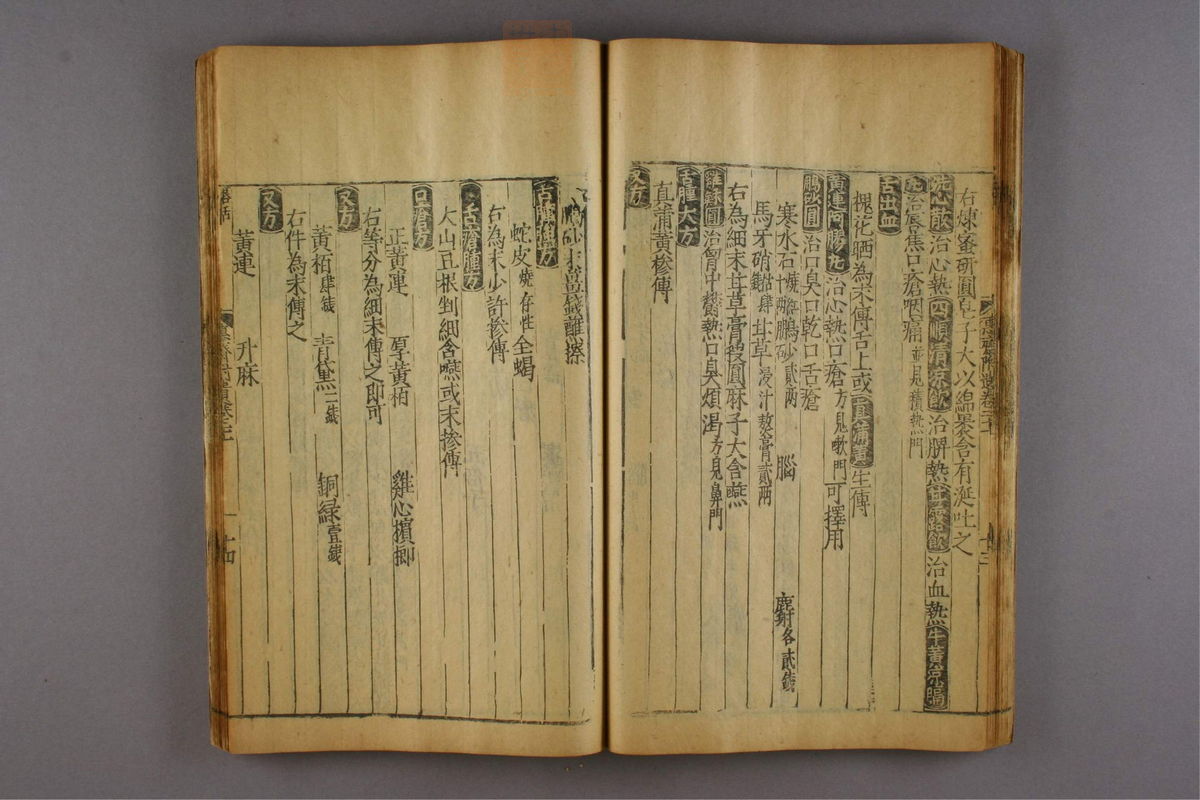 右煉蜜研圓皂子大以綿裹含有涎吐之
洗心散治心熱四順清涼飲治脾熱甘露飲治血熱牛黃涼膈
丸治唇焦口瘡咽痛並見積熱門
舌出血
槐花晒為末傅舌上或真蒲黃生傅
黃連阿膠丸治心熱口瘡方見嗽門可擇用
鵬砂圓治口臭口乾口舌瘡
寒水石燒十兩鵬砂貳兩 腦 麝各貳錢
馬牙硝枯肆錢甘草浸汁熬膏貳兩
右為細末甘草膏搜圓麻子大含嚥
雞蘇圓治胷中鬱熱口臭煩渴方見鼻門
舌腫大方
真蒲黃摻傅
又方
薑錢蘸擦
舌腫
蛇皮燒存性全蝎
右為末少許摻傅
舌瘡腫方
大山豆根剉細含嚥或末摻傅
口瘡方
正黃連 厚黃栢 雞心檳榔
右等分為細末傅之即可
又方
黃栢肆錢 青黛二錢 銅綠壹錢
右件為末傅之
又方
黃連 升麻
十四